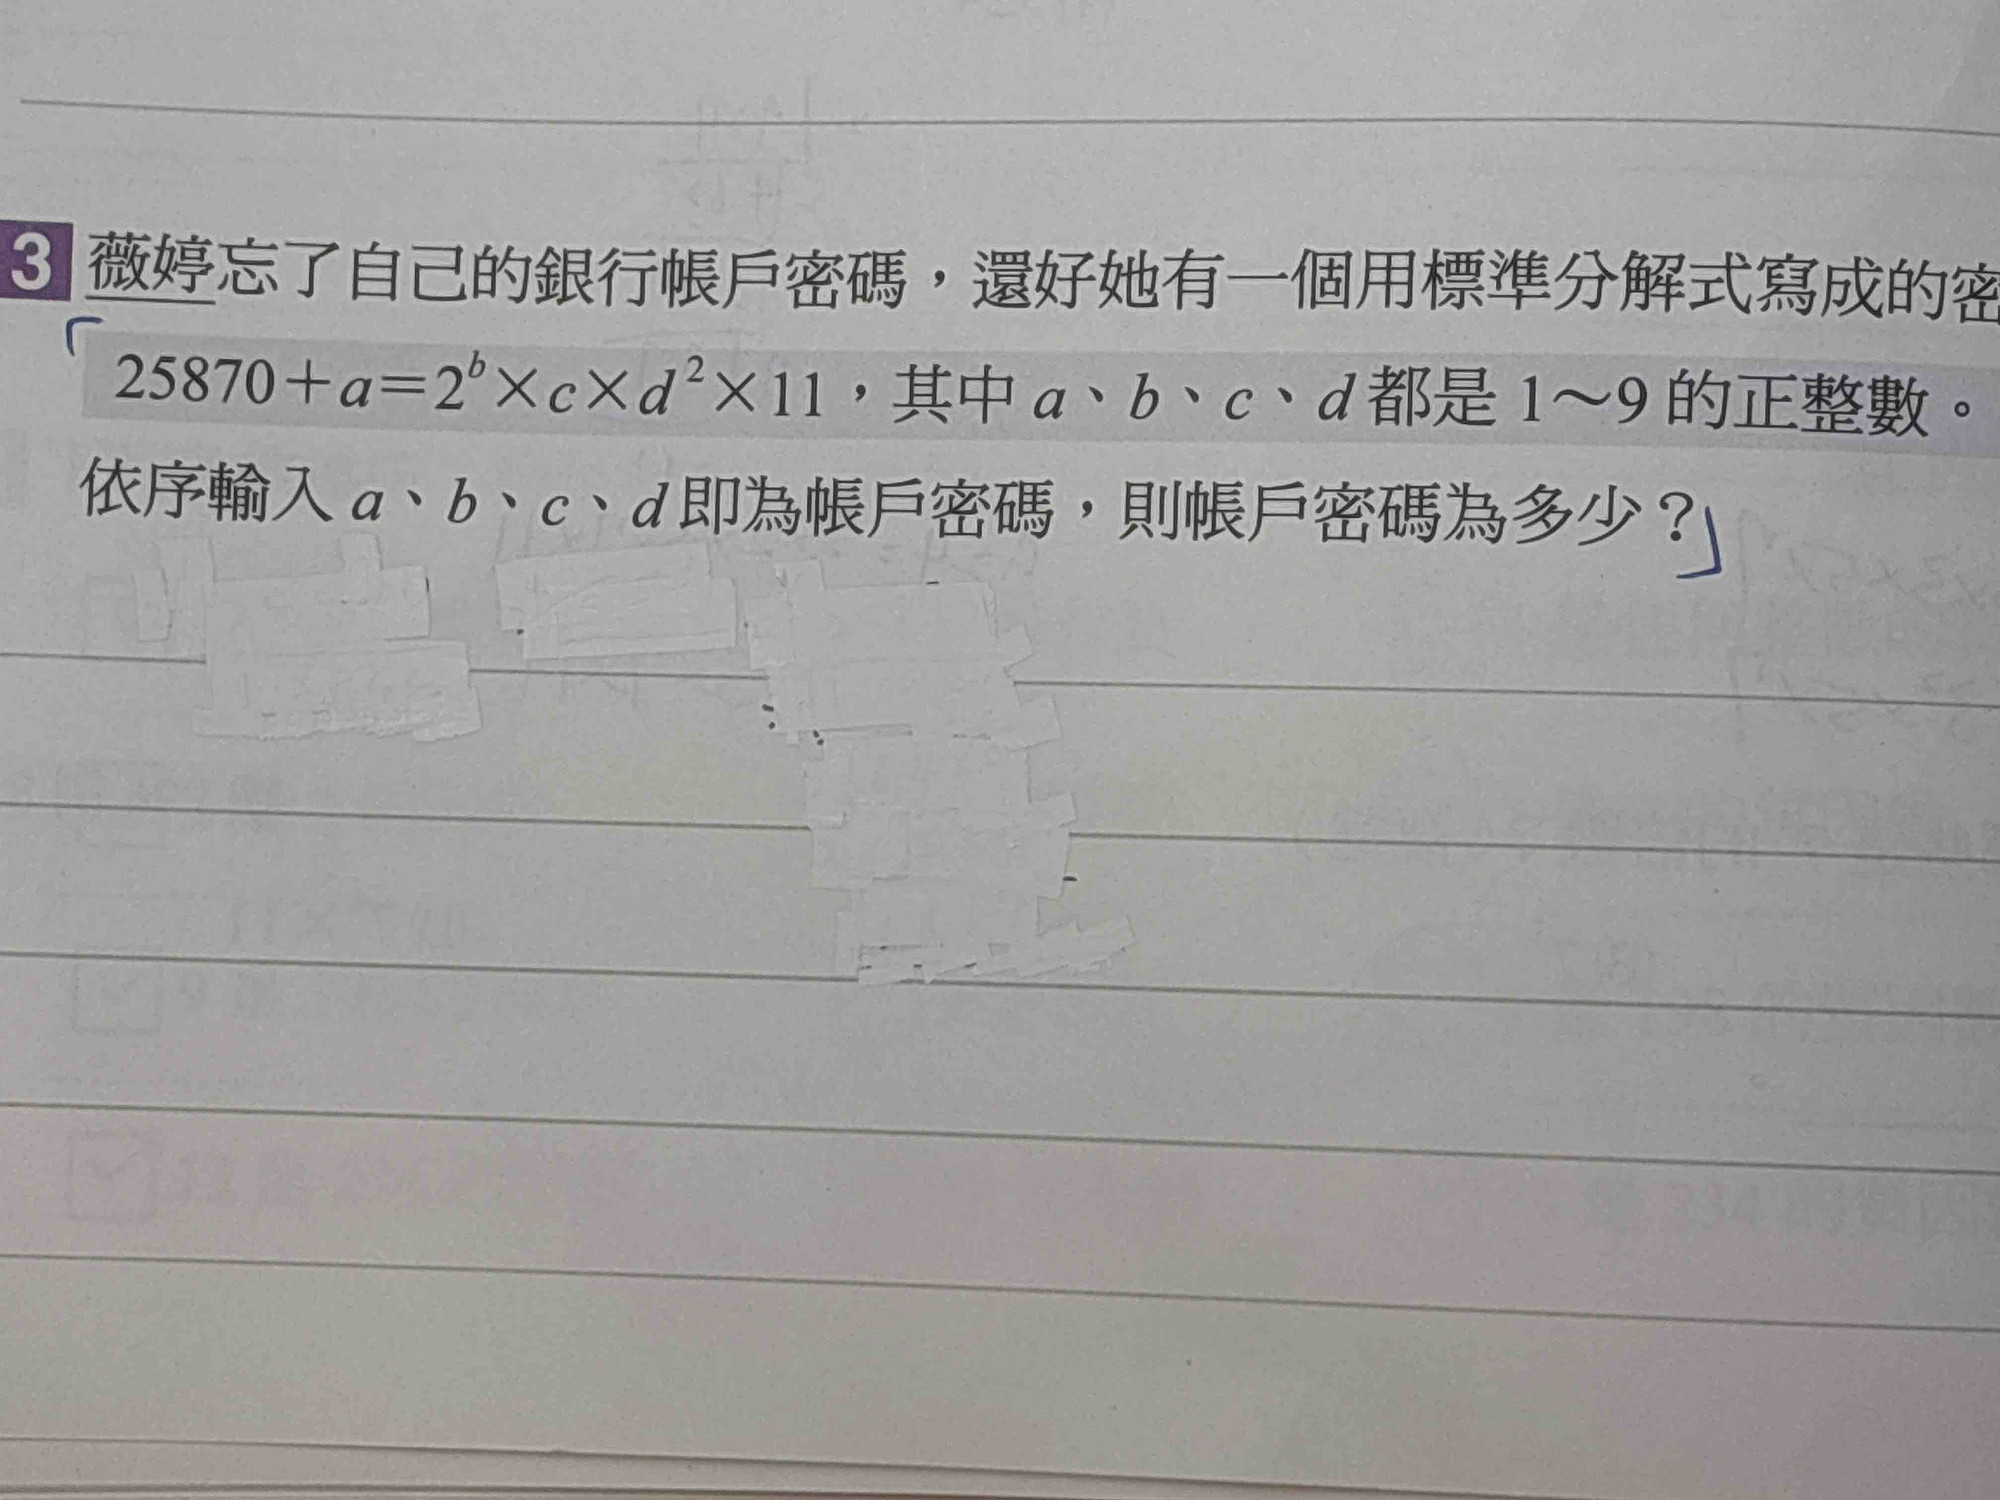 3 薇婷忘了自己的銀行帳戶密碼，還好她有一個用標準分解式寫成的密
「25870＋a＝2^b×c×d^2×11，其中 a、b、c、d 都是 1～9 的正整數。
依序輸入 a、b、c、d 即為帳戶密碼，則帳戶密碼為多少？」